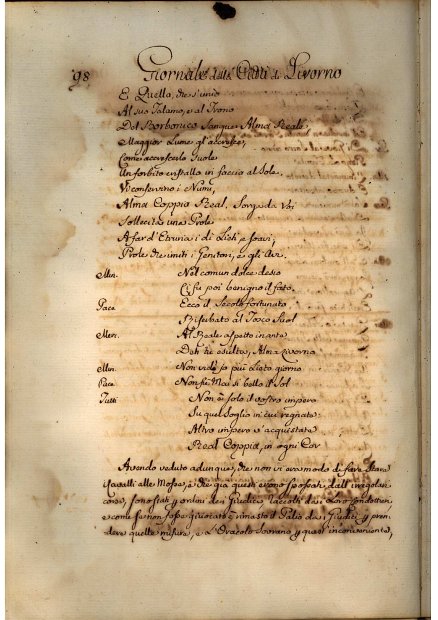 98 Giornale della Città di Livorno
E Quella, che s'unio
Al suo Talamo, e al Trono
Del Borbonico Sangue Alma Reale;
Maggior Lume gl'accresce,
Come accrescerlo suole
Un forbito cristallo in faccia al Sole.
Vi conservino i Numi,
Alma Coppia Real, Sorga da Voi
Sollecita una Prole
A far d'Etruria i dì Lieti, e soavi;
Prole che imiti i Genitori, e gli Avi.
Mer. Nel comun dolce desio
Ci fu poi benigno il fato
Pace Ecco il Secolo fortunato
Ri serbato al Tosco Suol
Mer. Al Reale aspetto inante
Deh tu esulta, Alma Livorno
Mer. Non vide so più Lieto giorno
Pace Non fù Mai sì bello il Sol
Tutti Non è solo il vostro impero
Su quel Soglio in cui regnate
Altro impero v'acquistate
Real Coppia, in ogni Cor
Avendo veduto adunque, che non vi era modo di fare stare
Cavalli alle Mosse, e che già questi erono spossati dall'irregolar
corso, sono stati per ordine dei Giudici, raccolti dai Loro Conduttori
e come se non fosse giuocato è rimasto il Palio dai Giudici per pren
dere quelle misure, e d'Oracolo Sovrano per quasi inconveniente,